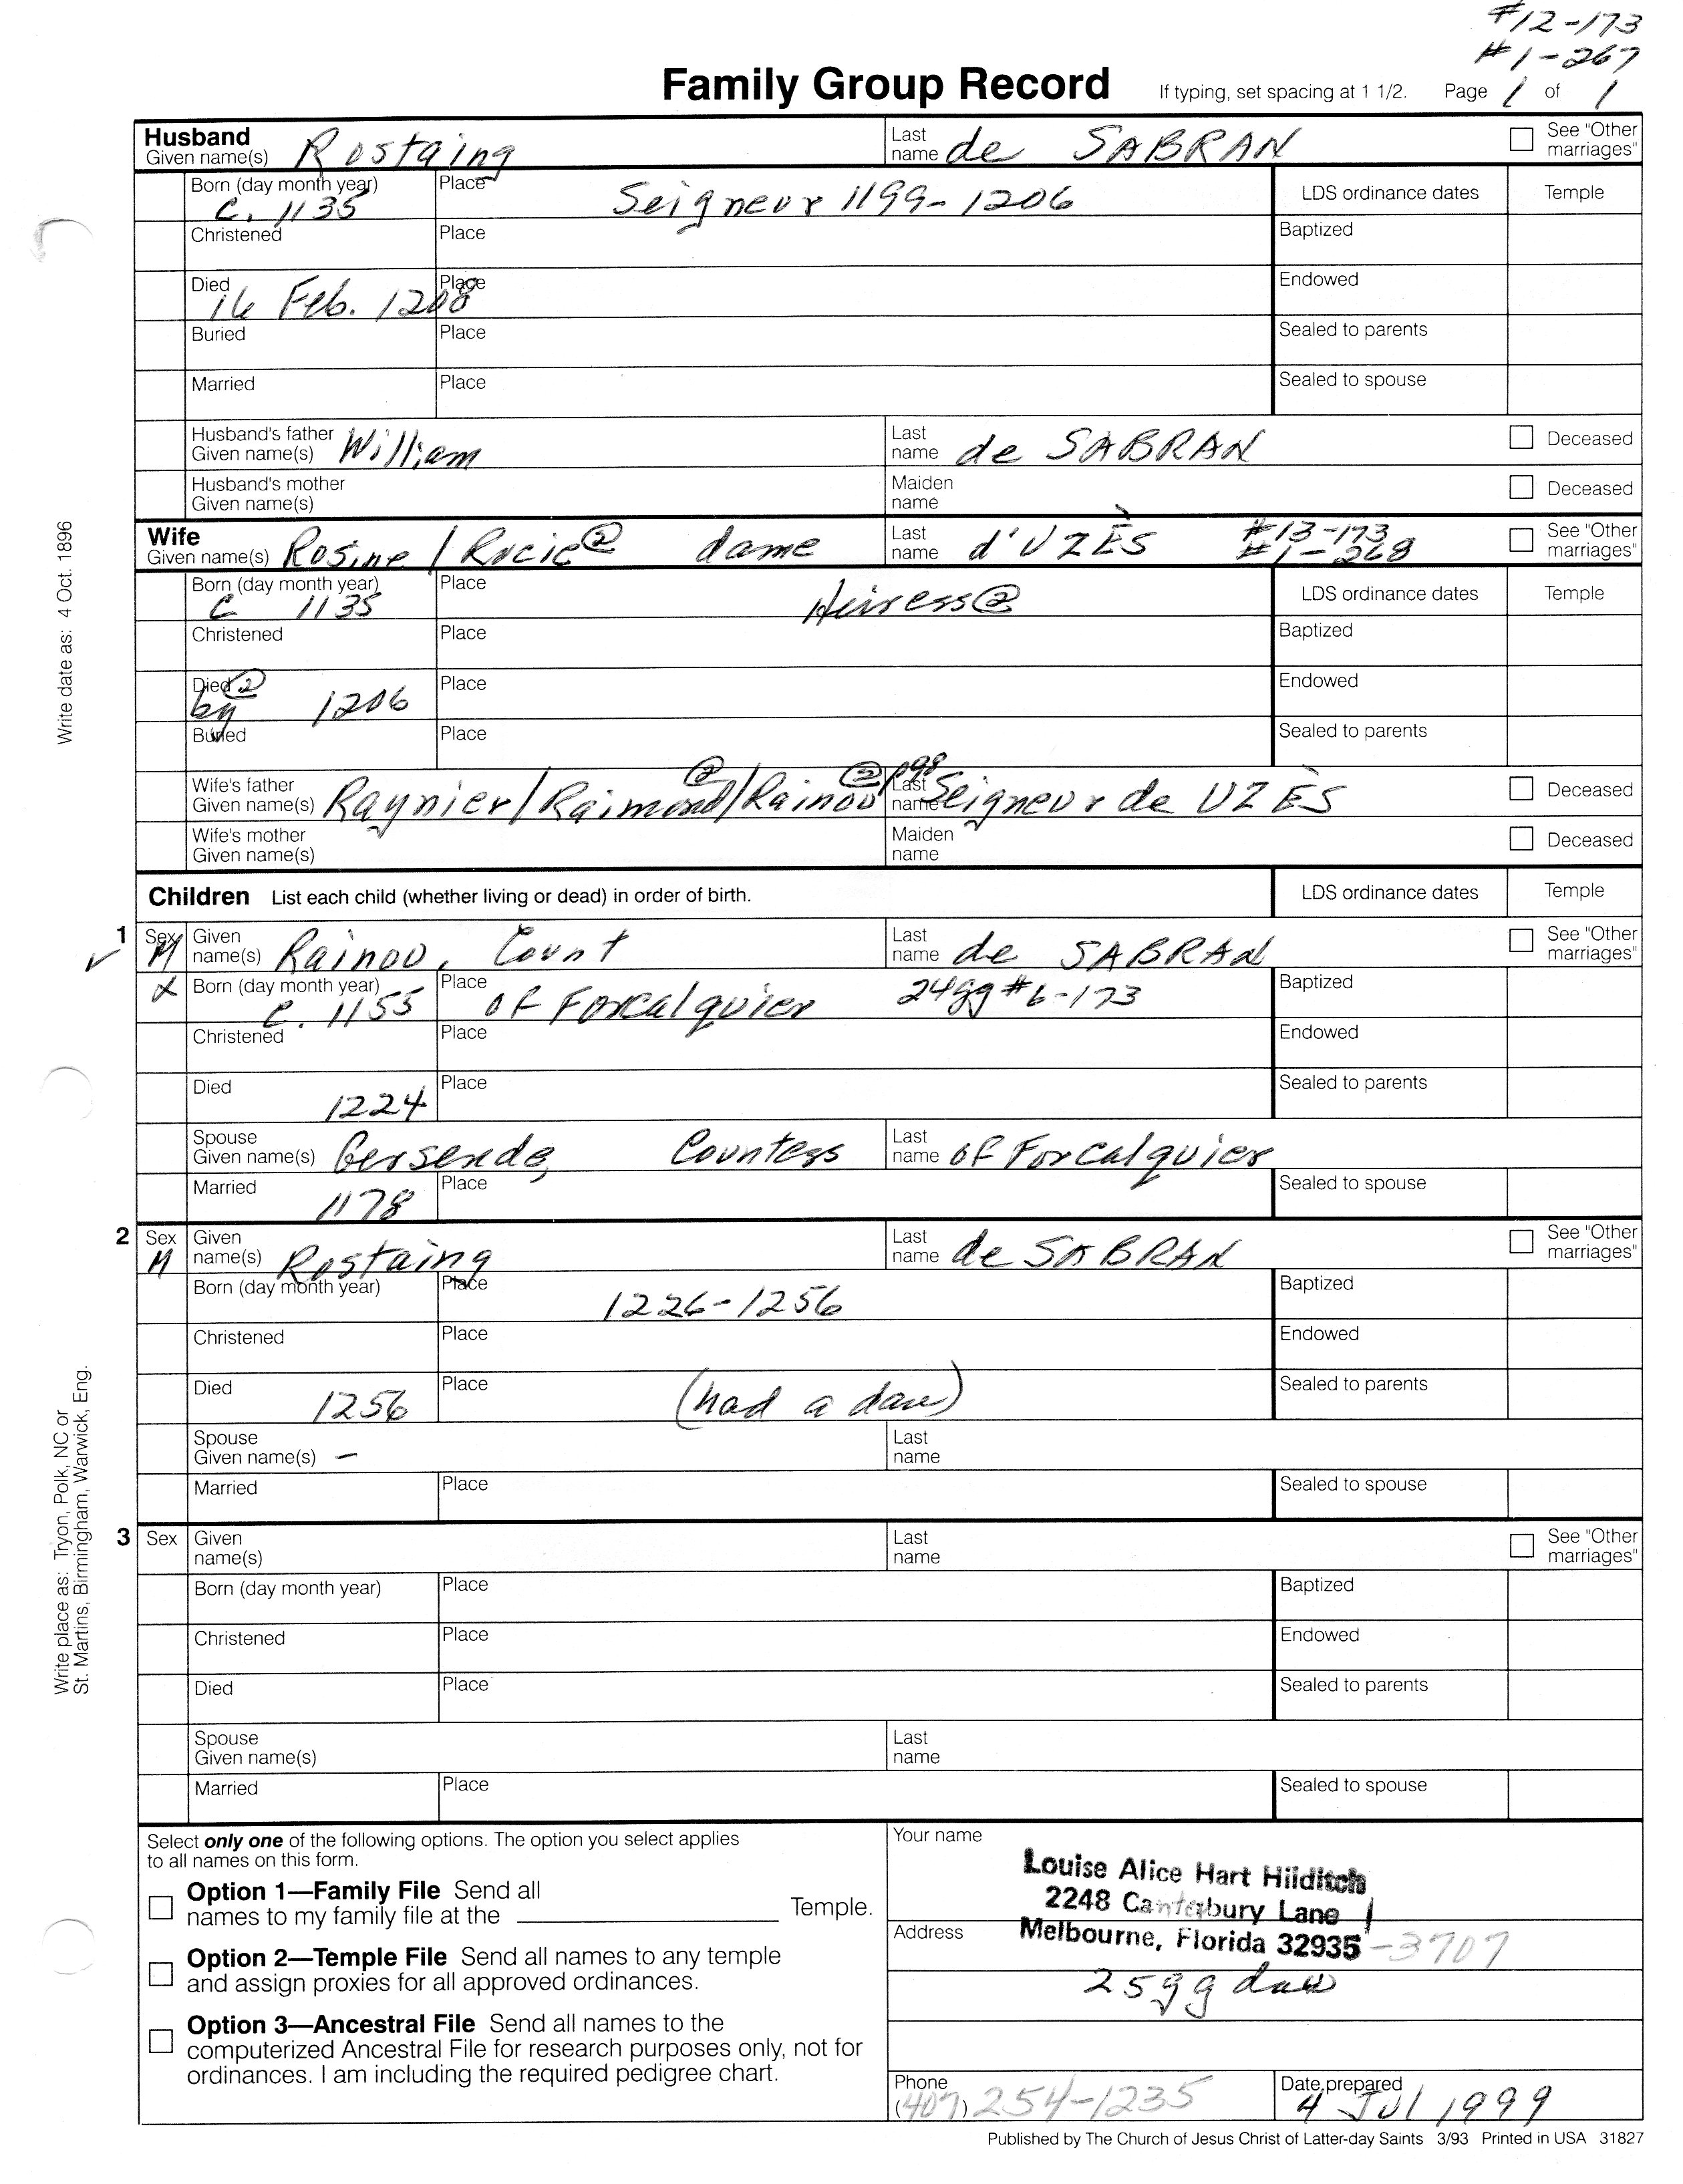 #12-173
#1-267
Family Group Record If typing, set spacing at 1 1/2. Page 1 of 1
Husband
Given name(s) Rostaing Last name de SABRAN See "Other marriages"
Born (day month year) c. 1135 Place Seigneur 1199-1206 LDS ordinance dates Temple
Christened Place Baptized
Died 16 Feb. 1208 Place Endowed
Buried Place Sealed to parents
Married Place Sealed to spouse
Husband's father Given name(s) William Last name de SABRAN Deceased
Husband's mother Given name(s) Maiden name Deceased
Wife
Given name(s) Rosine / Rocie② dame Last name d'UZÈS #13-173 #1-268 See "Other marriages"
Born (day month year) C 1135 Place Heiress② LDS ordinance dates Temple
Christened Place Baptized
Died② by 1206 Place Endowed
Buried Place Sealed to parents
Wife's father Given name(s) Raynier/Raimond②/Rainou② Last name Seigneur de UZÈS Deceased
Wife's mother Given name(s) Maiden name Deceased
Children List each child (whether living or dead) in order of birth. LDS ordinance dates Temple
1 Sex M Given name(s) Rainou, Count Last name de SABRAN See "Other marriages"
Born (day month year) c. 1155 Place of Forcalquier 24gg #6-173 Baptized
Christened Place Endowed
Died 1224 Place Sealed to parents
Spouse Given name(s) Gersende, Countess Last name of Forcalquier
Married 1178 Place Sealed to spouse
2 Sex M Given name(s) Rostaing Last name de SABRAN See "Other marriages"
Born (day month year) Place 1226-1256 Baptized
Christened Place Endowed
Died 1256 Place (had a dau) Sealed to parents
Spouse Given name(s) – Last name
Married Place Sealed to spouse
3 Sex Given name(s) Last name See "Other marriages"
Born (day month year) Place Baptized
Christened Place Endowed
Died Place Sealed to parents
Spouse Given name(s) Last name
Married Place Sealed to spouse
Select only one of the following options. The option you select applies
to all names on this form.
Option 1—Family File Send all
names to my family file at the Temple.
Option 2—Temple File Send all names to any temple
and assign proxies for all approved ordinances.
Option 3—Ancestral File Send all names to the
computerized Ancestral File for research purposes only, not for
ordinances. I am including the required pedigree chart.
Your name
Louise Alice Hart Hilditch
2248 Canterbury Lane
Address Melbourne, Florida 32935 -3707
25gg dau
Phone (407) 254-1235
Date prepared 4 Jul 1999
Published by The Church of Jesus Christ of Latter-day Saints 3/93 Printed in USA 31827
Write date as: 4 Oct. 1896
Write place as: Tryon, Polk, NC or
St. Martins, Birmingham, Warwick, Eng.